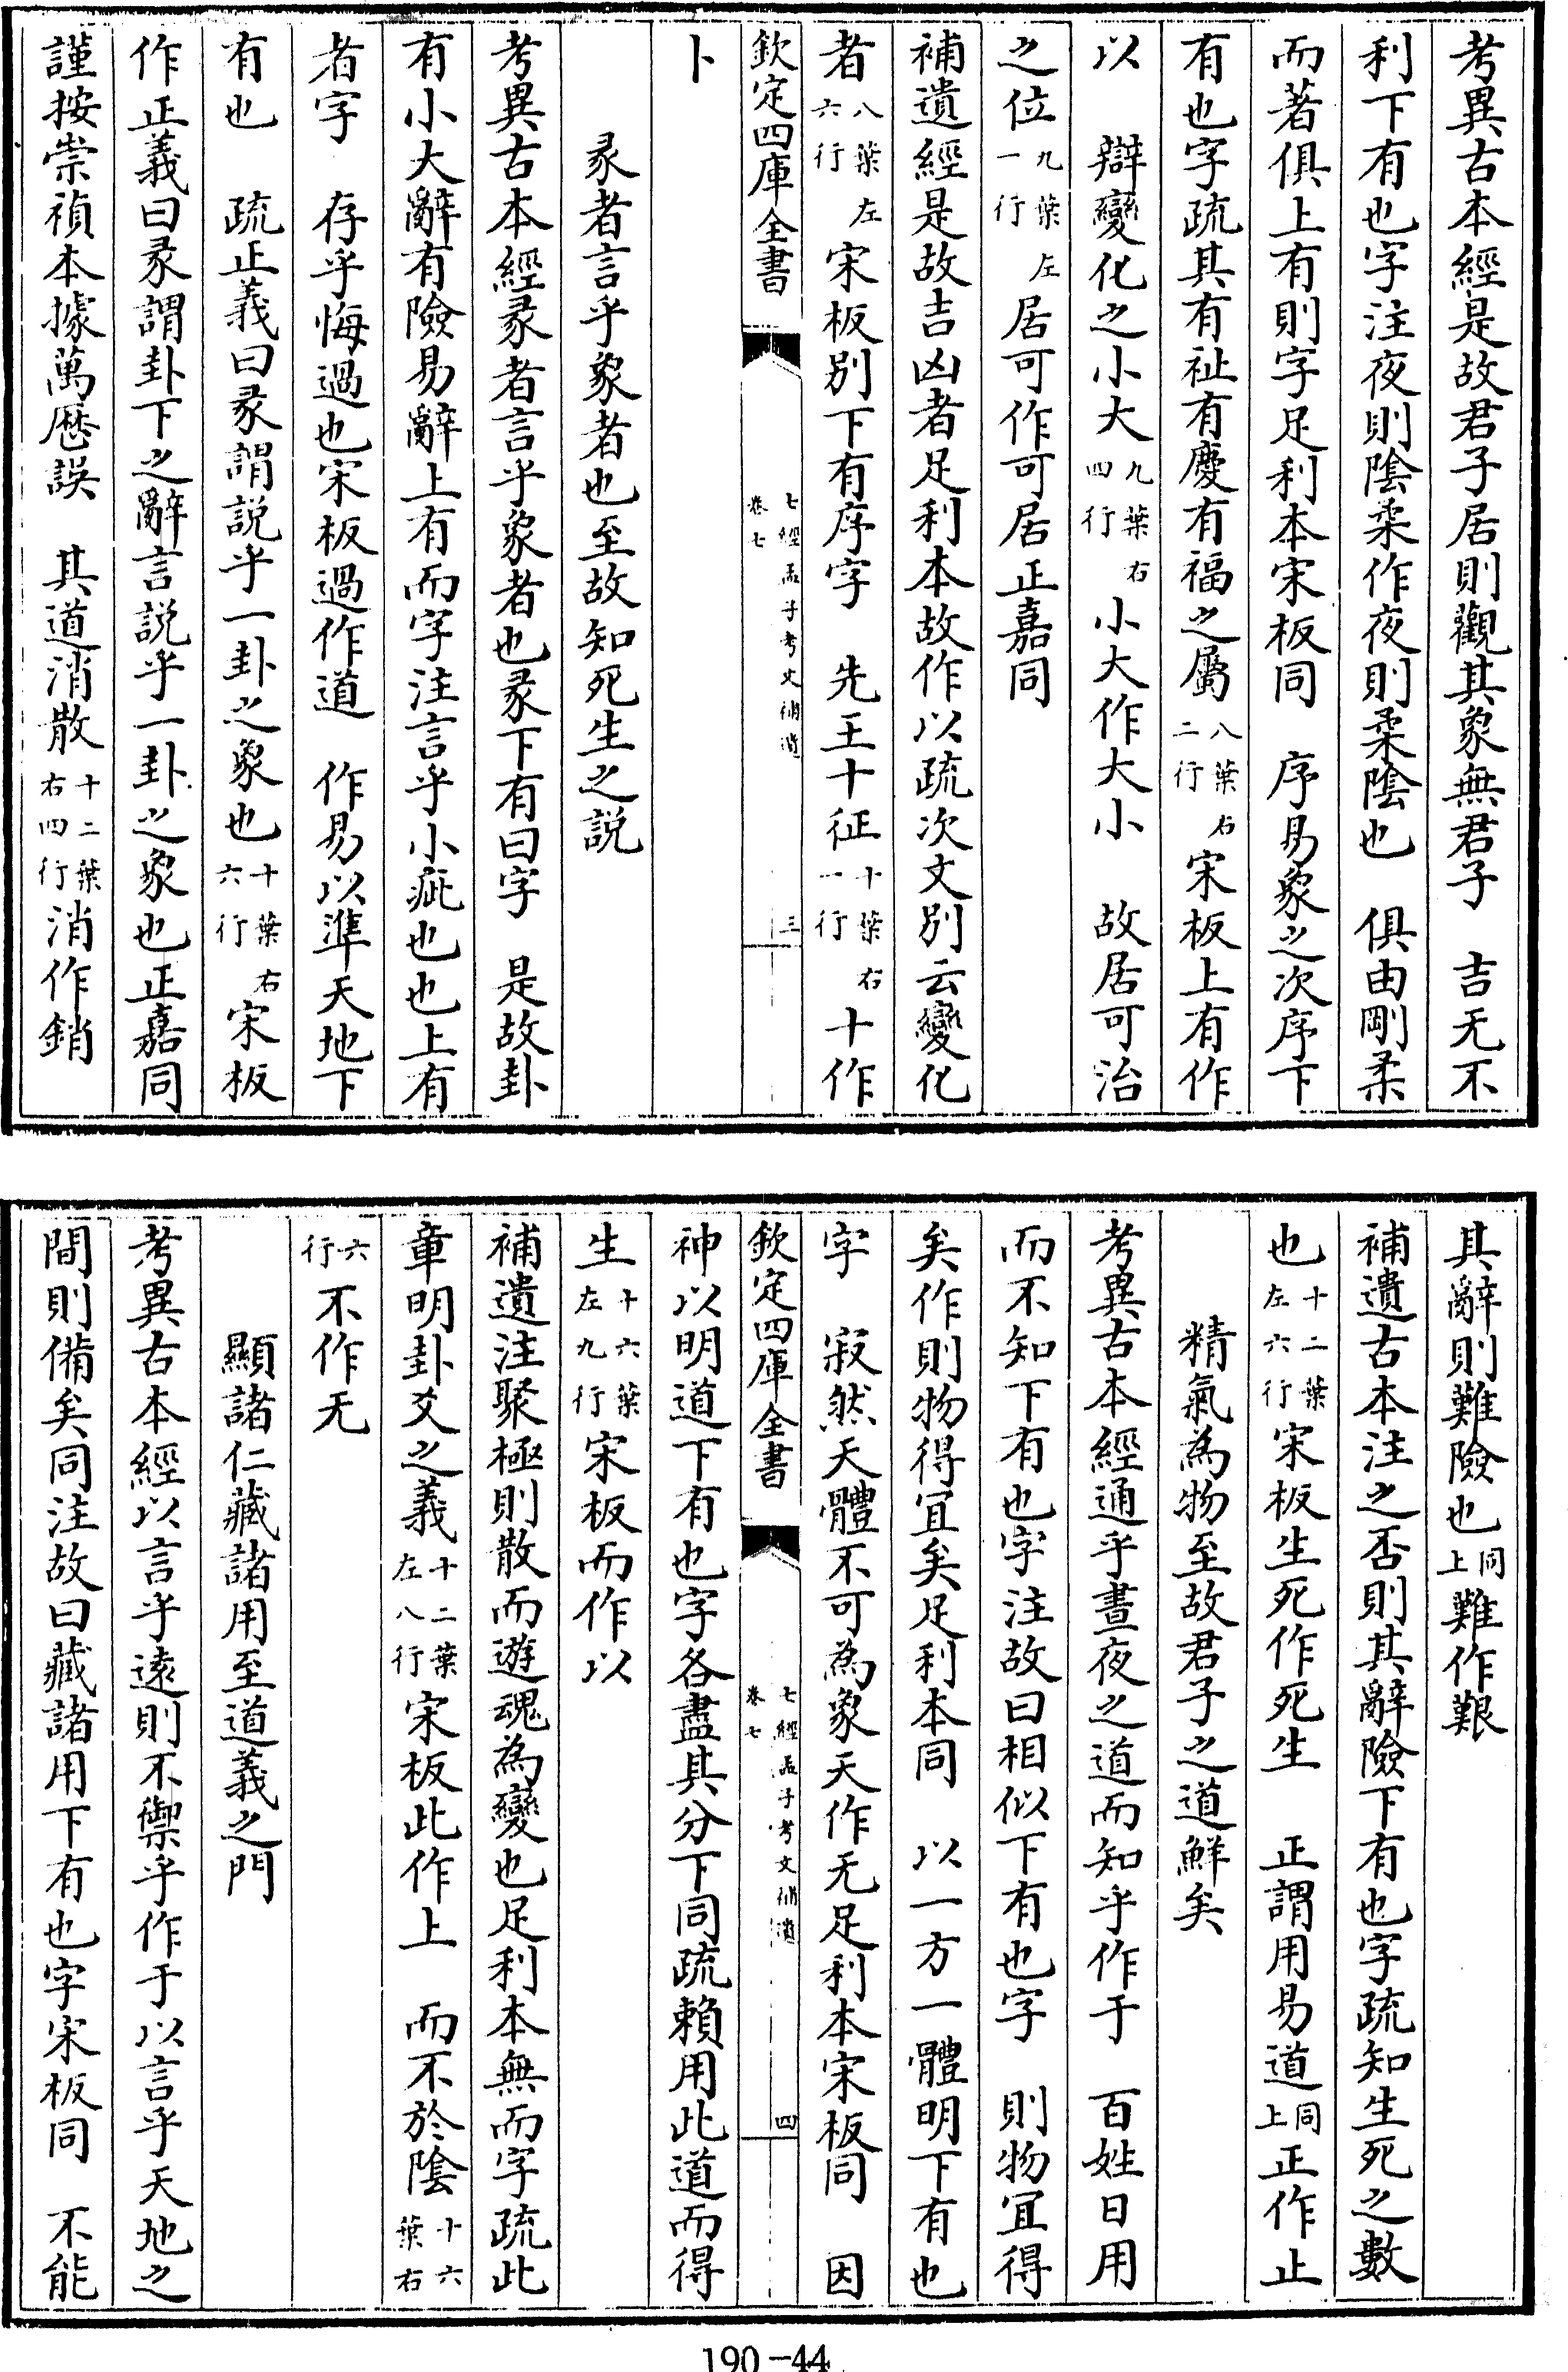 考異古本經是故君子居則觀其象無君子　吉无不
利下有也字注夜則陰柔作夜則柔陰也　俱由剛柔
而著俱上有則字足利本宋板同　序易象之次序下
有也字疏其有祉有慶有福之屬八葉右二行宋板上有作
以　辯變化之小大九葉右四行小大作大小　故居可治
之位九葉左一行居可作可居正嘉同
補遺經是故吉凶者足利本故作以疏次文別云變化
者八葉左六行宋板別下有序字　先王十征十葉右一行十作
欽定四庫全書
七經孟子考文補遺
卷七
三
卜
彖者言乎象者也至故知死生之説
考異古本經彖者言乎象者也彖下有曰字　是故卦
有小大辭有險易辭上有而字注言乎小疵也也上有
者字　存乎悔過也宋板過作道　作易以準天地下
有也　疏正義曰彖謂説乎一卦之象也十葉右六行宋板
作正義曰彖謂卦下之辭言説乎一卦之象也正嘉同
謹按崇禎本據萬厯誤　其道消散十二葉右四行消作銷
其辭則難險也同上難作艱
補遺古本注之否則其辭險下有也字疏知生死之數
也十二葉左六行宋板生死作死生　正謂用易道同上正作止
精氣為物至故君子之道鮮矣
考異古本經通乎晝夜之道而知乎作于　百姓日用
而不知下有也字注故曰相似下有也字　則物宜得
矣作則物得宜矣足利本同　以一方一體明下有也
字　寂然天體不可為象天作无足利本宋板同　因
欽定四庫全書
七經孟子考文補遺
卷七
四
神以明道下有也字各盡其分下同疏賴用此道而得
生十六葉左九行宋板而作以
補遺注聚極則散而遊魂為變也足利本無而字疏此
章明卦爻之義十二葉左八行宋板此作上　而不於陰十六葉右
六行不作无
顯諸仁藏諸用至道義之門
考異古本經以言乎遠則不禦乎作于以言乎天地之
間則備矣同注故曰藏諸用下有也字宋板同　不能
190-44